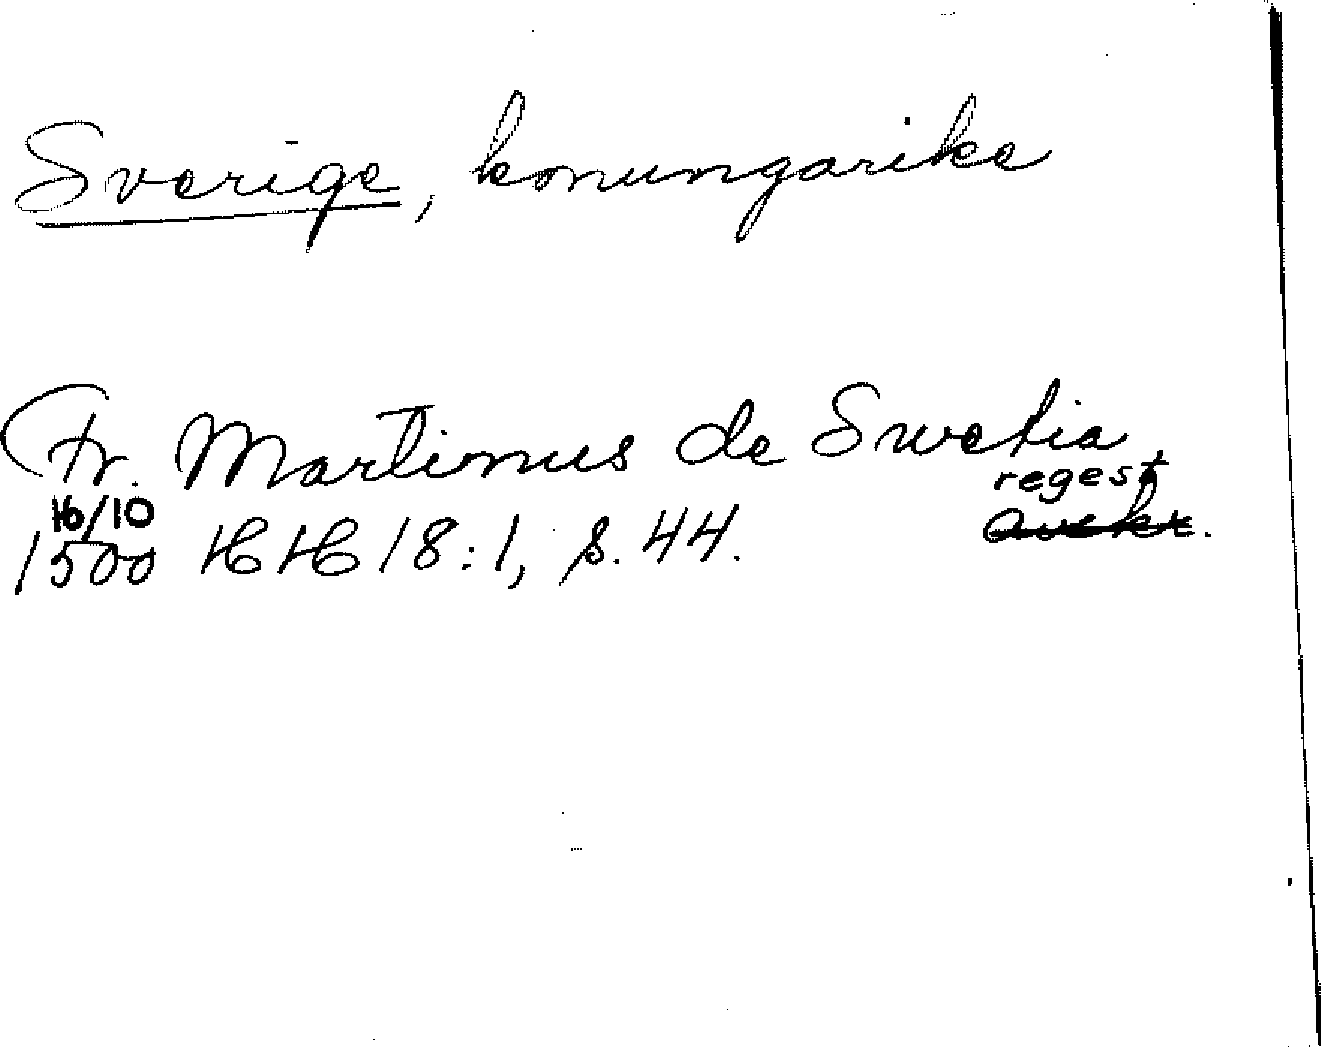 Sverige, konungarike
Fr. Martinus de Swetia
regest
16/10
1500 HH 18:1, s. 44. avskr.